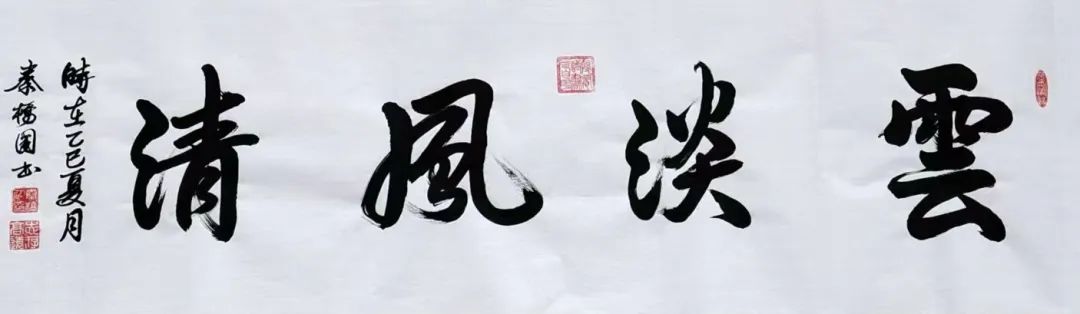 雲淡風清
時在乙巳夏月
秦橋國书